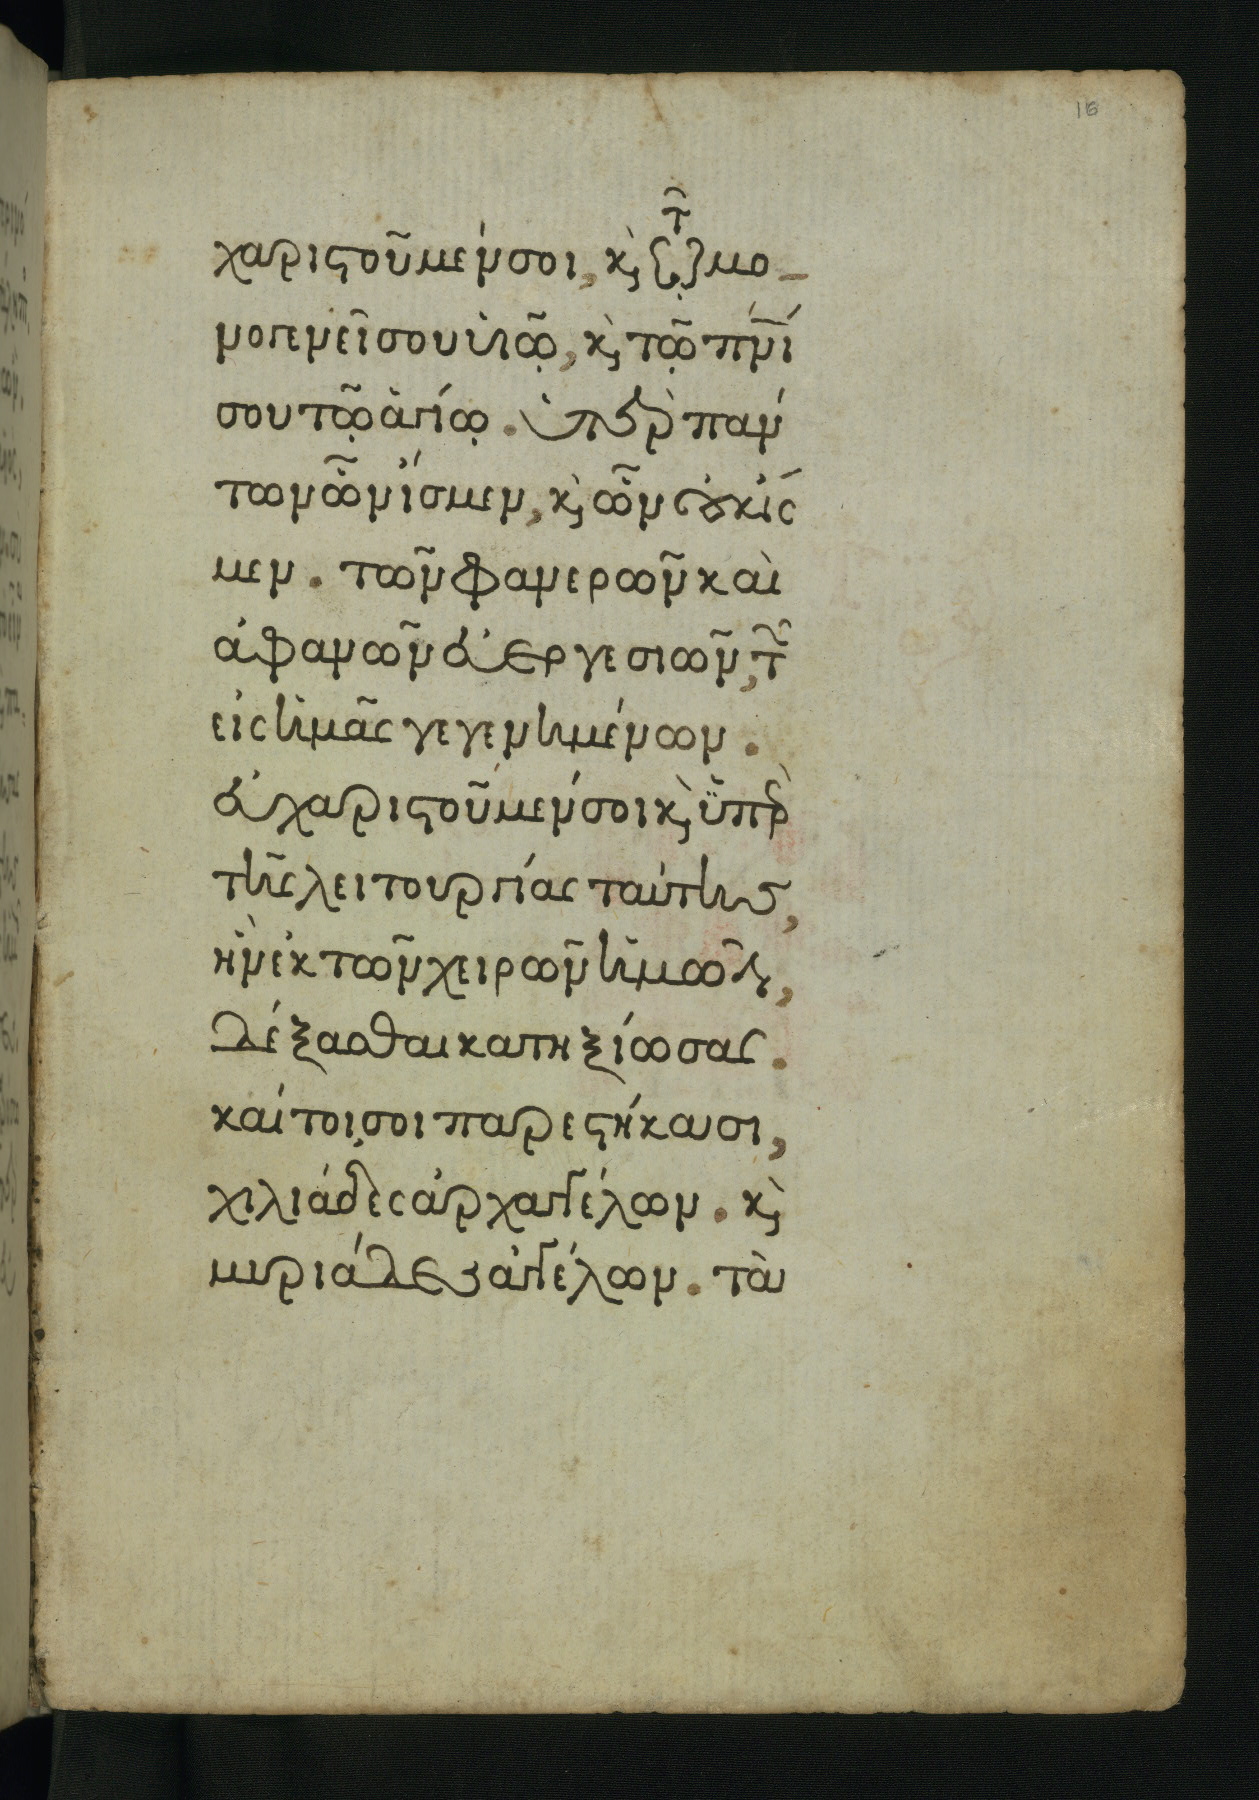 16
χαριστοῦμέν σοι, κ̀ τῶ μο-
νογενεῖ σου υἱῶ, κ̀ τῶ πν̅ί
σου τῶ ἁγίω. ὑπὲρ πάν
των ὧν ἴσμεν, κ̀ ὧν οὐκ ἴσ
μεν. τῶν φανερῶν καὶ
ἀφανῶν εὐεργεσιῶν, τ̃
εἰς ἡμᾶς γεγενημένων.
εὐχαριστοῦμέν σοι κ̀ ὑπὲρ
τῆς λειτουργίας ταύτης,
ἣν ἐκ τῶν χειρῶν ἡμῶν,
δέξασθαι κατηξίωσας.
καίτοι σοι παρεστήκασι,
χιλιάδες ἀρχαγγέλων. κ̀
μυριάδες ἀγγέλων. τὰ